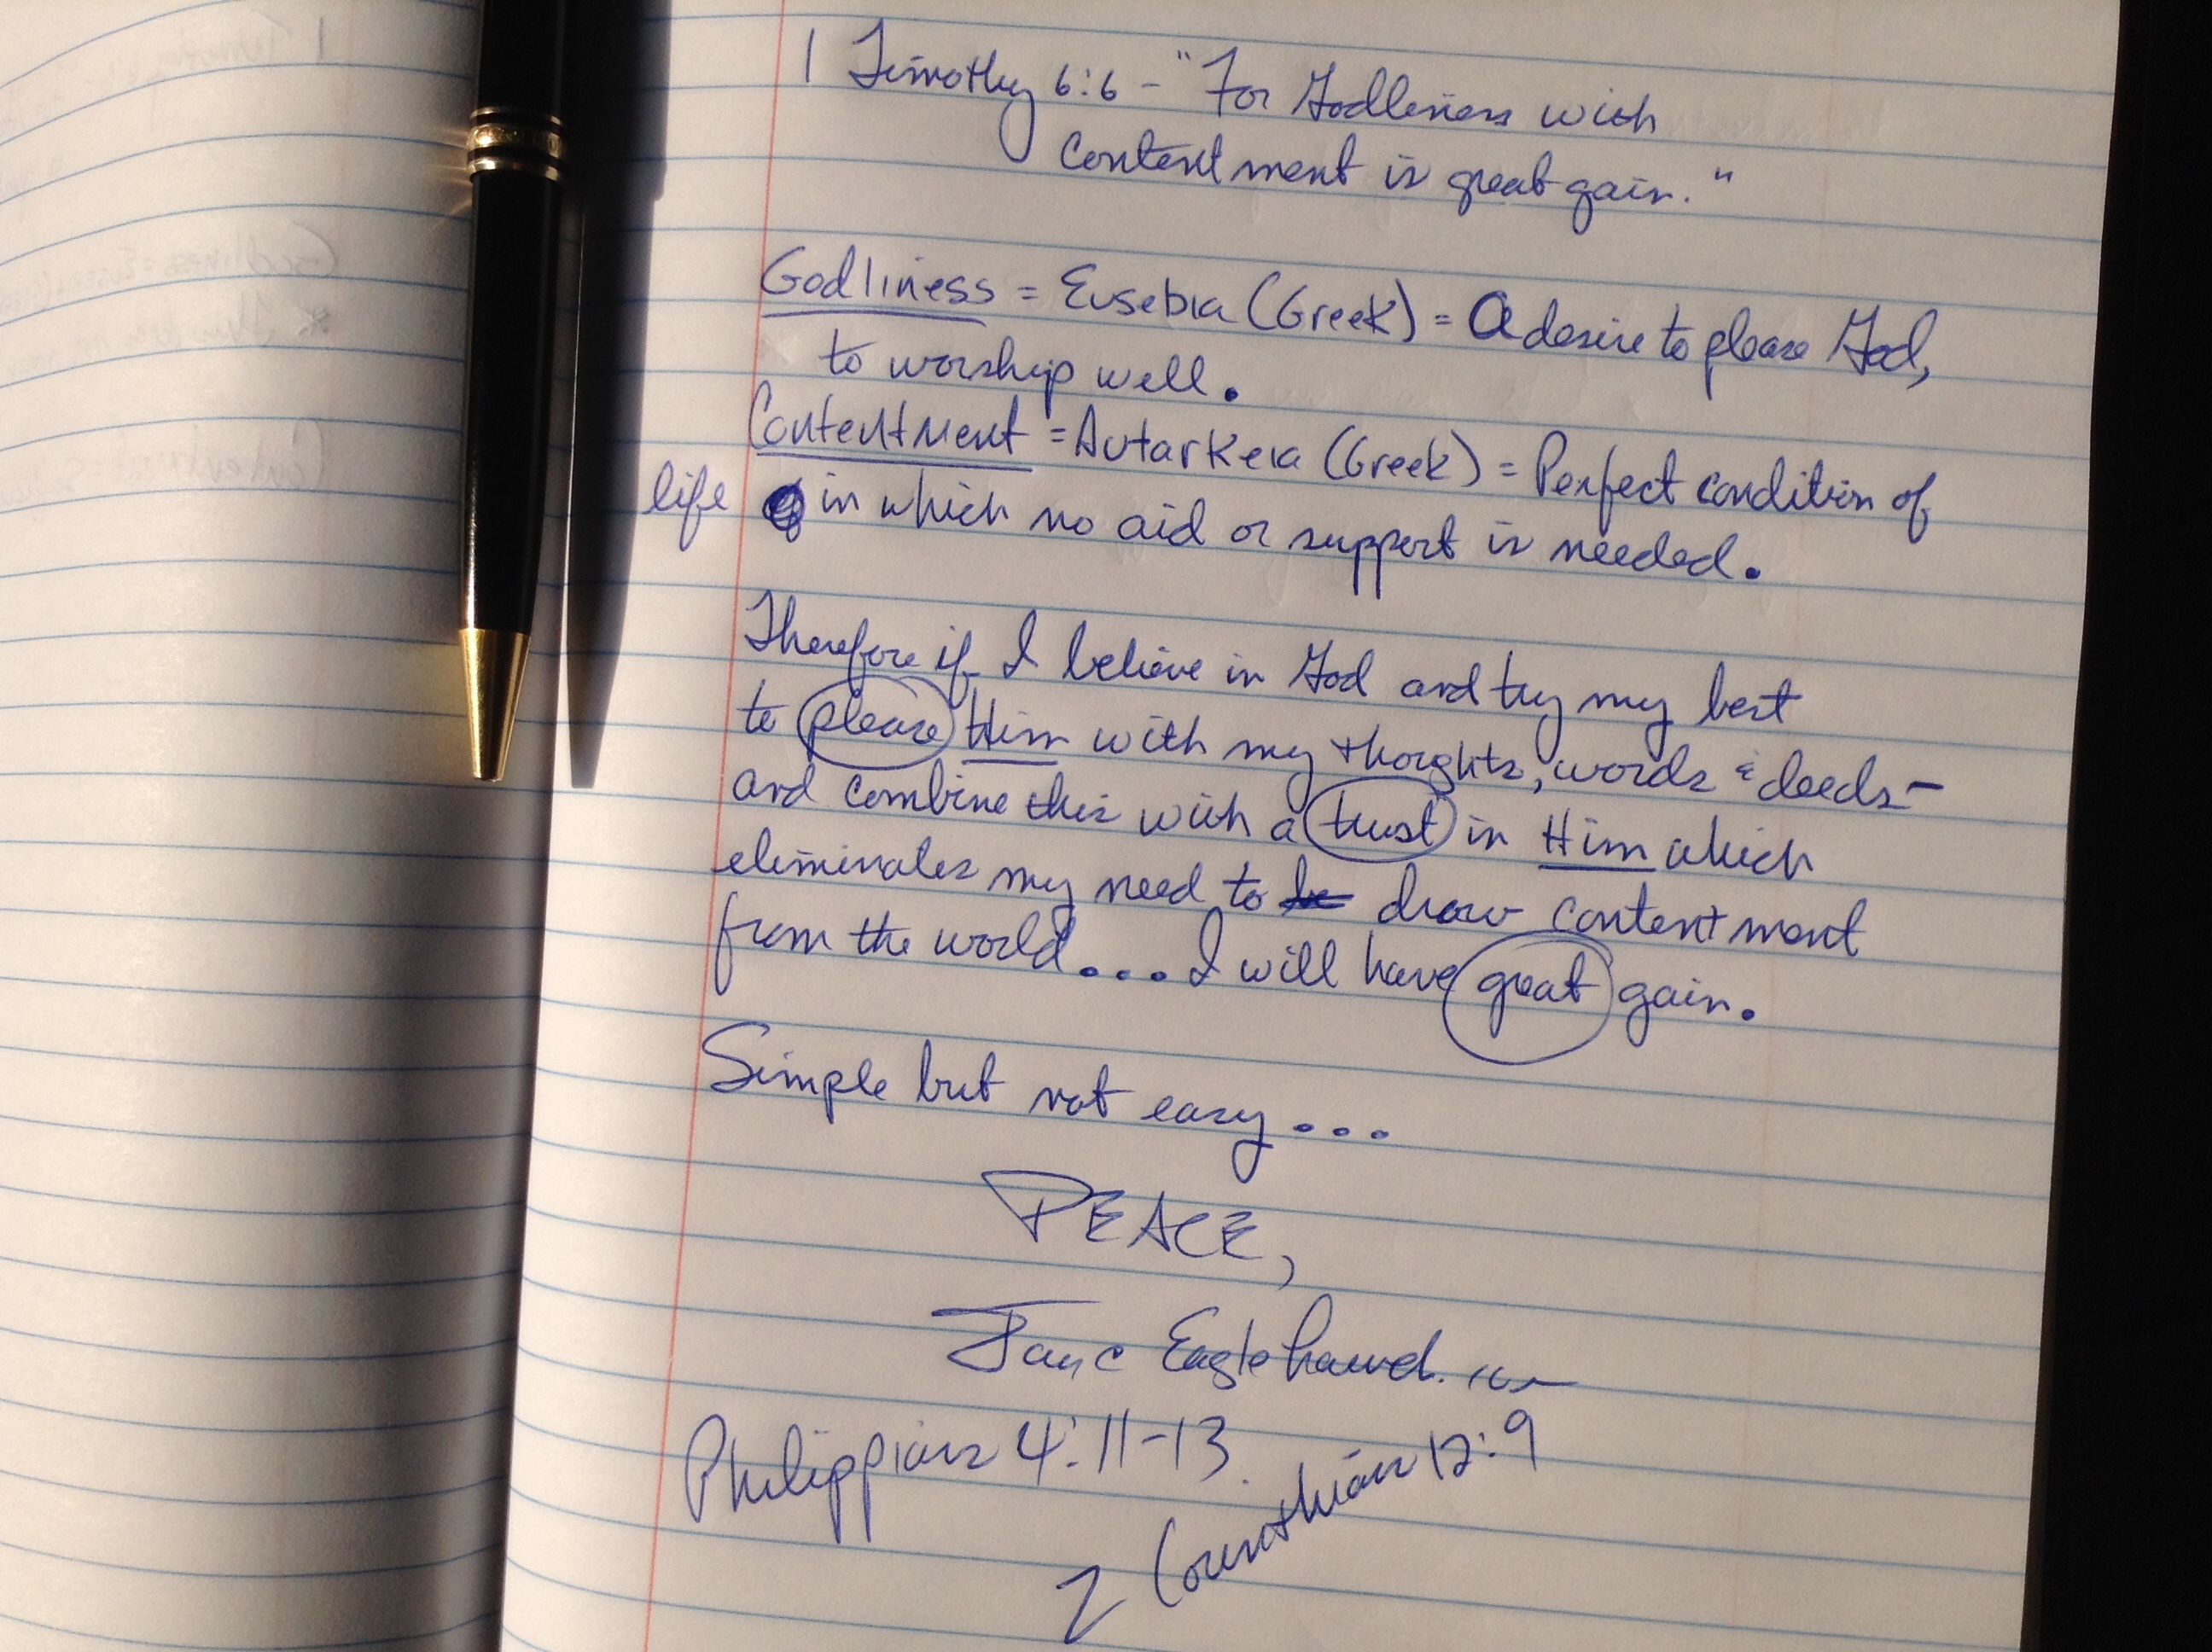 1 Timothy 6:6 - "For Godliness with
contentment is great gain."
Godliness = Eusebia (Greek) = A desire to please God,
to worship well.
Contentment = Autarkeia (Greek) = Perfect condition of
life in which no aid or support is needed.
Therefore if I believe in God and try my best
to please Him with my thoughts, words & deeds-
and combine this with a trust in Him which
eliminates my need to draw contentment
from the world.... I will have great gain.
Simple but not easy...
PEACE,
Eagle
Philippians 4:11-13
2 Corinthians 12:9